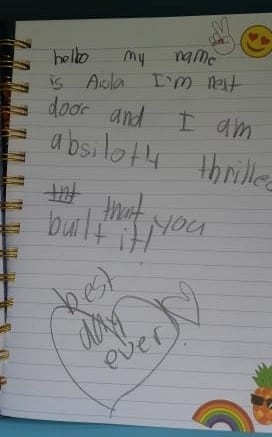 hello my name
is Aiola I'm next
door and I am
absilotly thrilled
that you
built it!
best
day
ever!